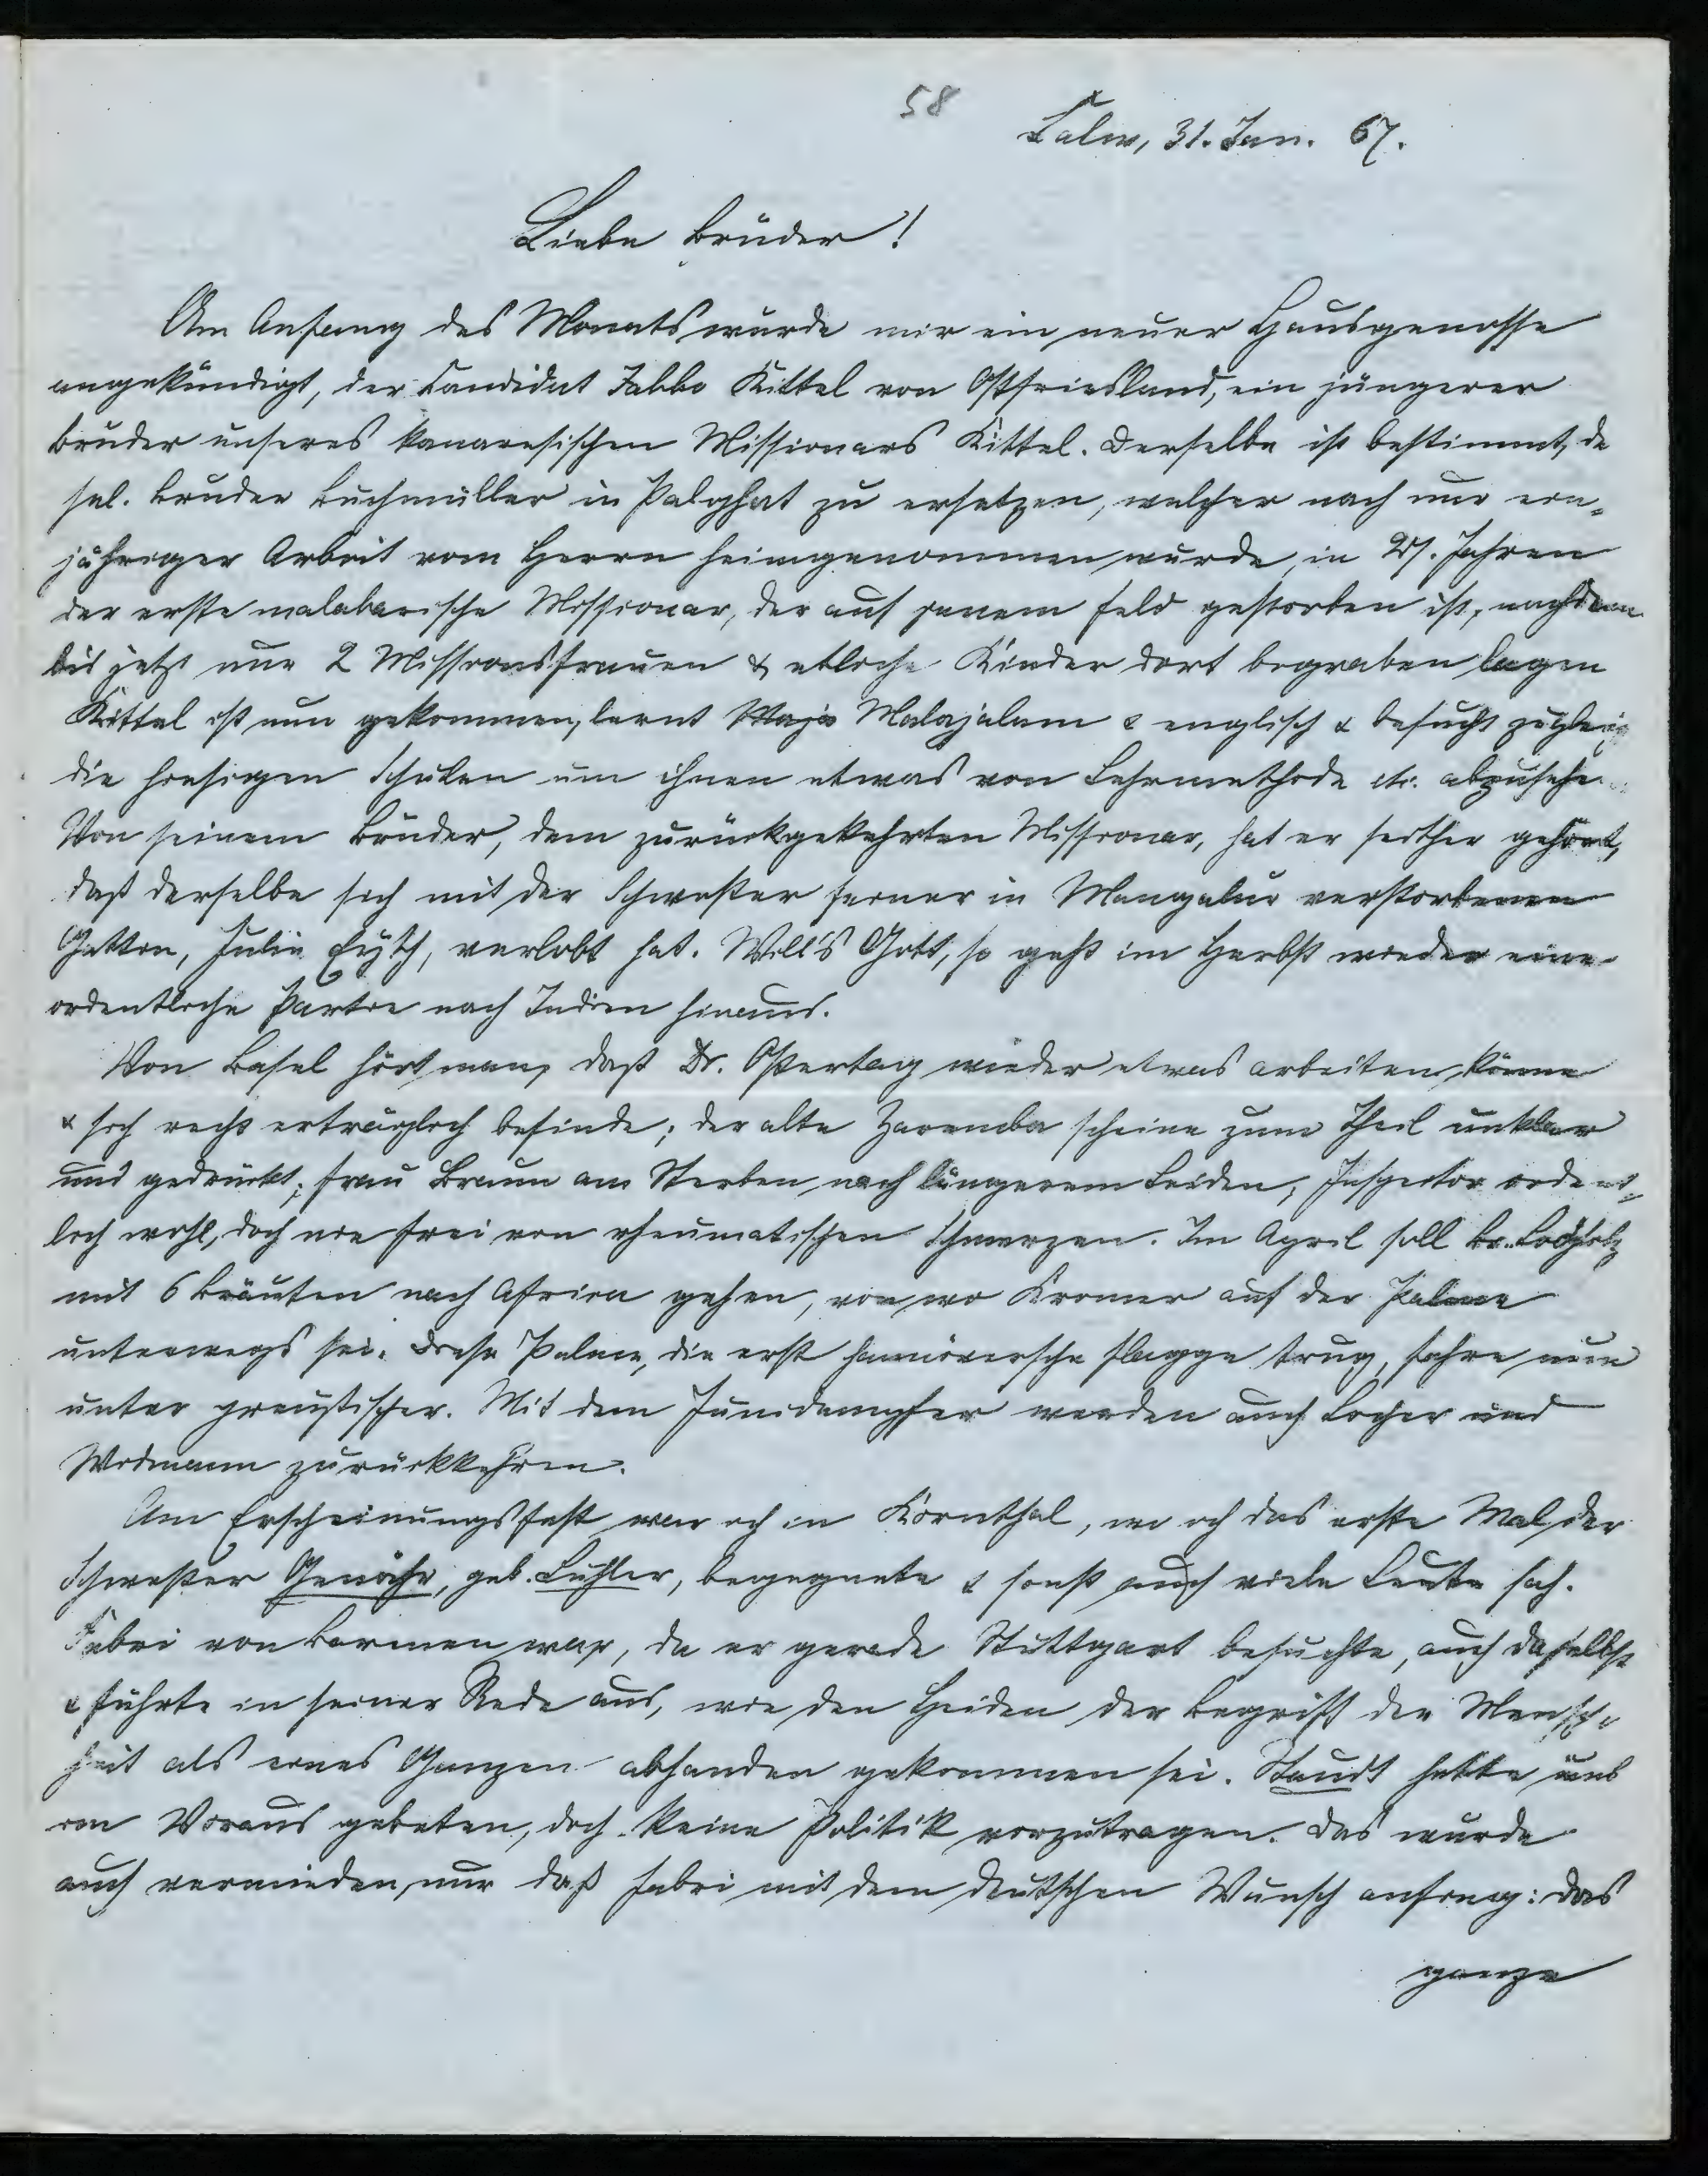 58
Calw, 31. Jan. 67.
Liebe Brüder!
Am Anfang des Monats wurde mir ein neuer Hausgenosse
angekündigt, der Candidat Jakko Kittel von Ostfriesland, ein jüngerer
Bruder unseres kanaresischen Missionars Kittel. Derselbe ist bestimmt, de
sel. Bruder Buchmüller in Palghat zu ersetzen, welcher nach nur ein-
jähriger Arbeit vom Herrn heimgenommen wurde, in 27. Jahren
der erste malabarische Missionar, der auf jenem Feld gestorben ist, nachdem
bis jetzt nur 2 Missionsfrauen & etliche Kinder dort begraben lagen
Kittel ist nun gekommen, lernt Maja Malajalam & englisch & besucht zugleich
die hiesigen Schulen um ihnen etwas von Lehrmethode etc. abzusehen
Von seinem Bruder, dem zurückgekehrten Missionar, hat er seither gehört,
daß derselbe sich mit der Schwester seiner in Mangalur verstorbenen
Gattin, Julie Eyth, verlobt hat. Will's Gott, so geht im Herbst wieder eine
ordentliche Partie nach Indien hinaus.
Von Basel hört man, daß Dr. Ostertag wieder etwas arbeiten könne
& sich recht erträglich befinde; der alte Zaremba scheine zum Theil unklar
und gedrückt; Frau Braun am Sterben nach längerem Leiden, Inspector ordent-
lich wohl, doch nie frei von rheumatischen Schmerzen. Im April soll Br. Lodholz
mit 6 Bräuten nach Africa gehen, von wo Kromer auf der Palme
unterwegs sei. Diese Palme, die erst hannöversche Flagge trug, fahre nun
unter preußischer. Mit dem Junidampfer werden auch Locher und
Widmann zurückkehren.
Am Erscheinungsfest war ich in Kornthal, wo ich das erste Mal der
Schwester Gewähr, geb. Buhler, begegnete & sonst auch viele Leute sah.
Fabri von Barmen war, da er gerade Stuttgart besuchte, auch daselbst
& führte in seiner Rede aus, wie den Heiden der Begriff der Mensch-
heit als eines Ganzen abhanden gekommen sei. Staudt hatte uns
im Voraus gebeten, doch keine Politik vorzutragen. Das wurde
auch vermieden, nur daß Fabri mit dem deutschen Wunsch anfing: das
ganze